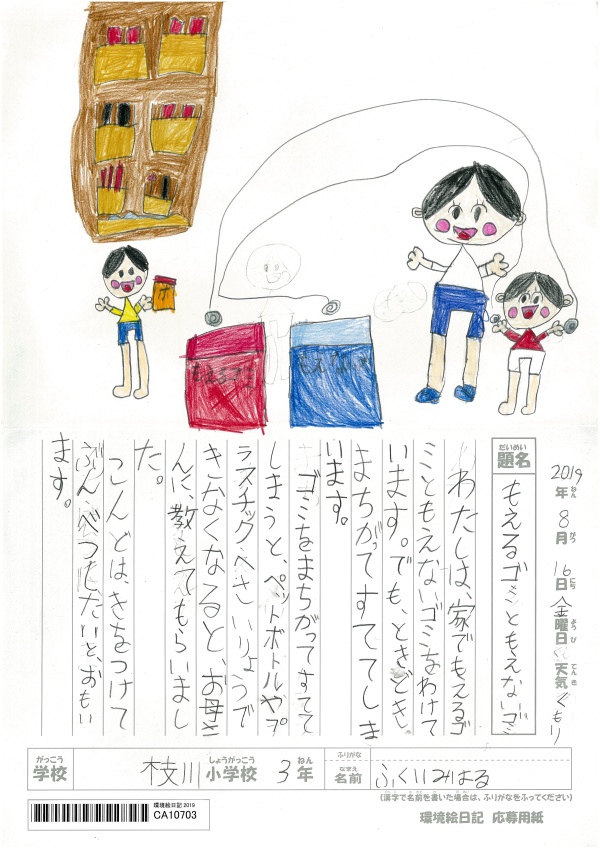 もえるゴミ
もえない
2019年8月16日金曜日天気くもり
ねん がつ にち ようび てんき
だいめい
題名 もえるゴミともえないゴミ
わたしは、家でもえるゴ
ミともえないゴミをわけて
います。でも、ときどき、
まちがってすててしま
います。
ゴミをまちがってすてて
しまうと、ペットボトルやプ
ラスチックへさいりようで
きなくなると、お母さ
んに、教えてもらいまし
た。
こんどは、きをつけて
ぶんべつしたいと、おもい
ます。
がっこう しょうがっこう ねん
学校 枝川小学校 3年
ふりがな
なまえ
名前 ふくいみはる
(漢字で名前を書いた場合は、ふりがなをふってください)
環境絵日記 2019
CA10703
環境絵日記 応募用紙